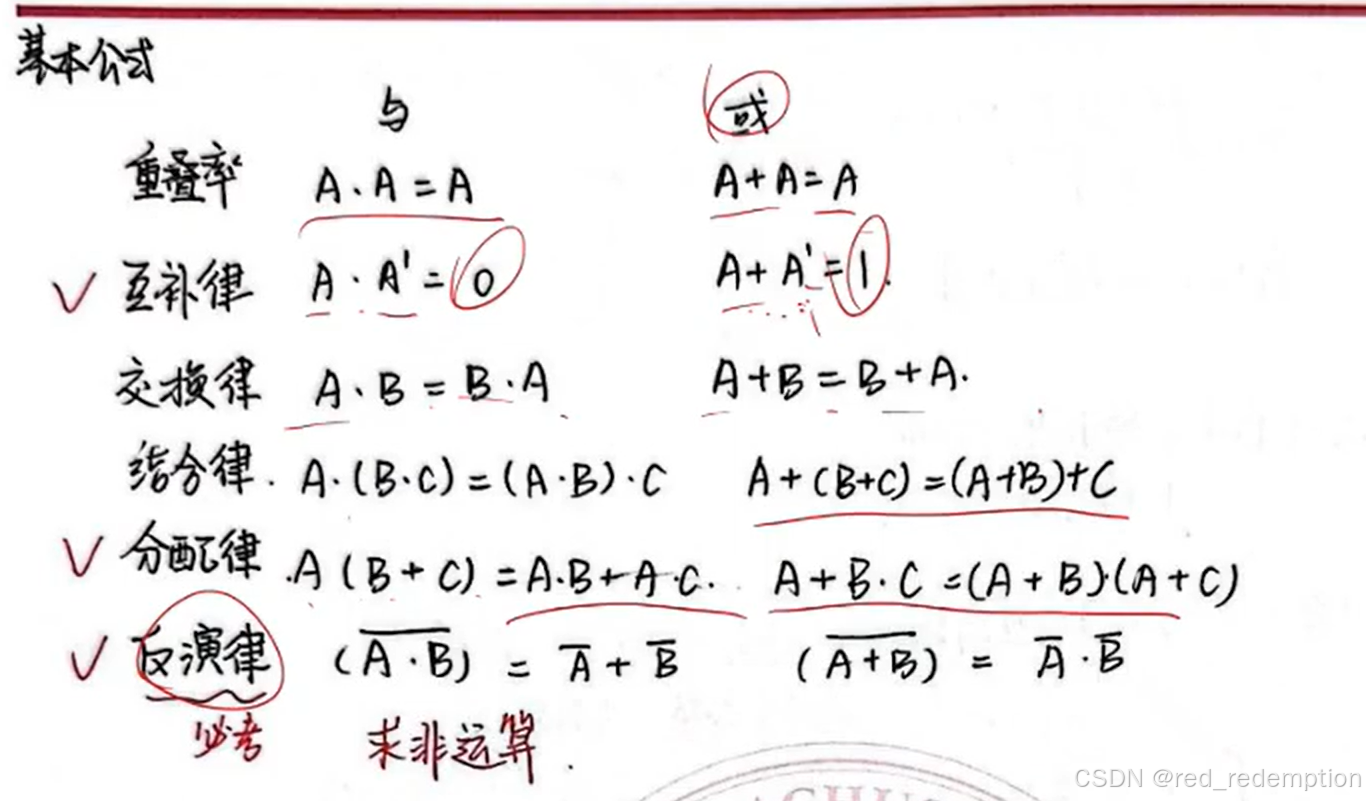 基本公式
与 或
重叠率 A·A=A A+A=A
互补律 A·A'=0 A+A'=1.
交换律 A·B=B·A A+B=B+A.
结合律. A·(B·C)=(A·B)·C A+(B+C)=(A+B)+C
分配律 .A(B+C)=A·B+A·C. A+B·C=(A+B)·(A+C)
反演律 (A̅·̅B̅)=A̅+B̅ (A̅+̅B̅)=A̅·B̅
必考 求非运算.
CSDN @red_redemption